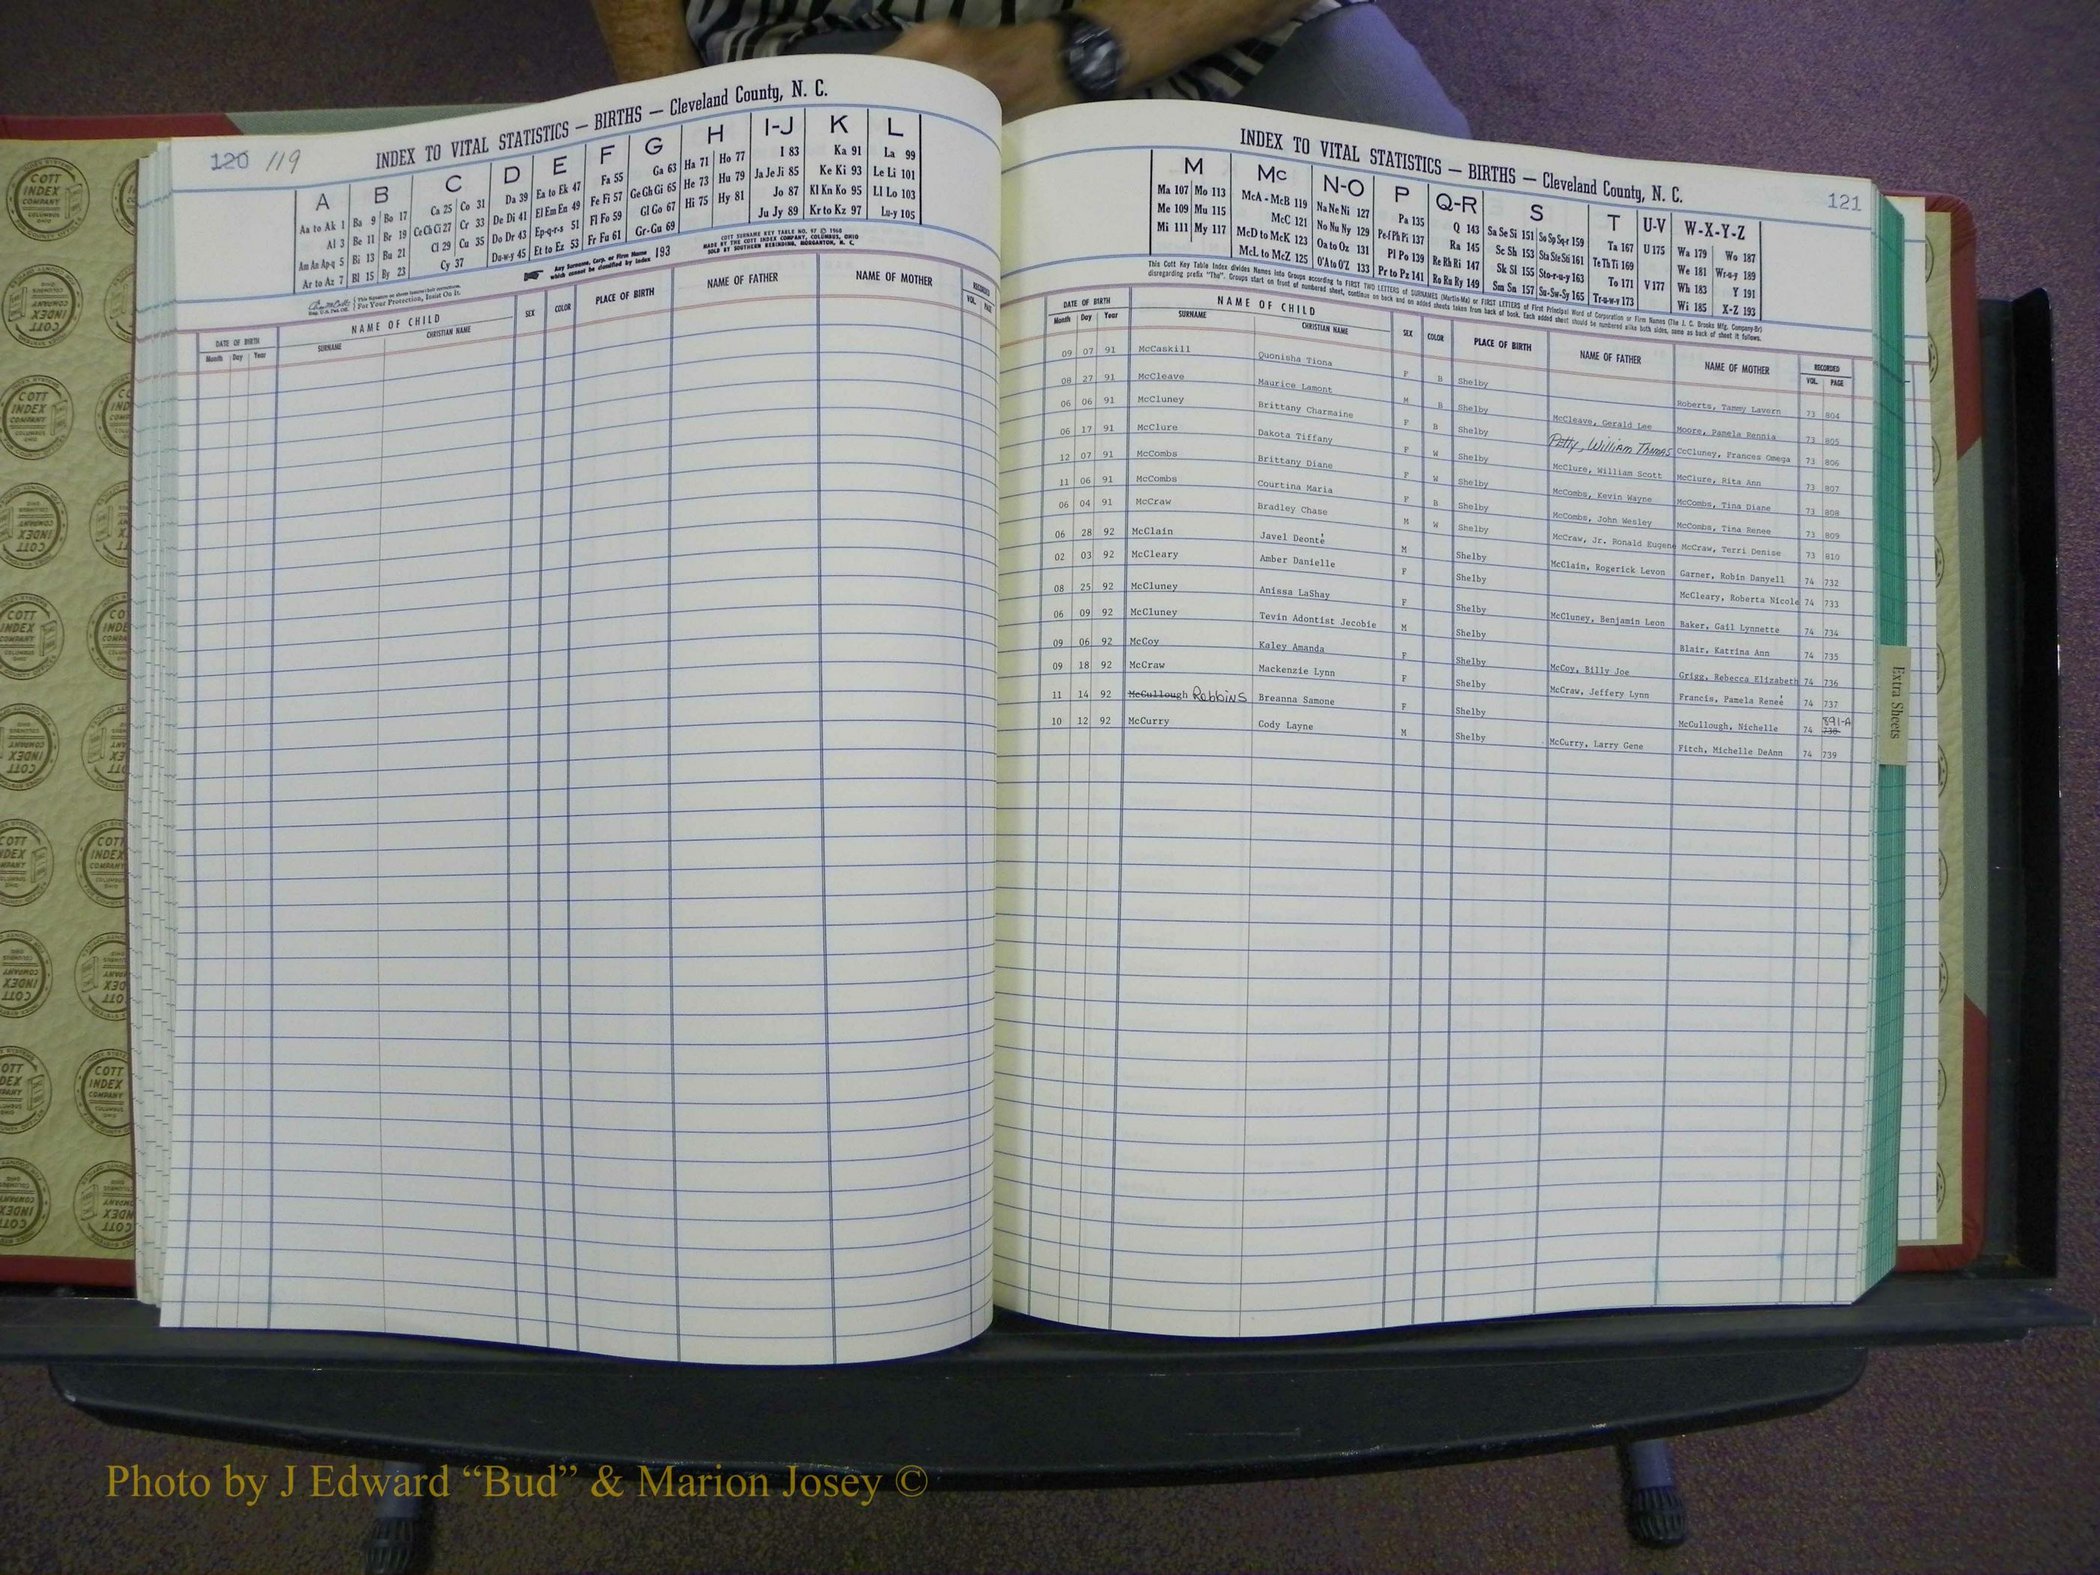 120 119
INDEX TO VITAL STATISTICS — BIRTHS — Cleveland County, N. C.
A B C D E F G H I-J K L
Aa to Ak 1 Ba 9 Bo 17 Ca 25 Co 31 Da 39 Ea to Ek 47 Fa 55 Ga 63 Ha 71 Ho 77 I 83 Ka 91 La 99
Al 3 Be 11 Br 19 Ce Ch Ci 27 Cr 33 De Di 41 El Em En 49 Fe Fi 57 Ge Gh Gi 65 He 73 Hu 79 Ja Je Ji 85 Ke Ki 93 Le Li 101
Am An Ap-q 5 Bi 13 Bu 21 Cl 29 Cu 35 Do Dr 43 Ep-q-r-s 51 Fl Fo 59 Gl Go 67 Hi 75 Hy 81 Jo 87 Kl Kn Ko 95 Ll Lo 103
Ar to Az 7 Bl 15 By 23 Cy 37 Du-w-y 45 Et to Ez 53 Fr Fu 61 Gr-Gu 69 Ju Jy 89 Kr to Kz 97 Lu-y 105
COTT SURNAME KEY TABLE NO. 97 © 1968
MADE BY THE COTT INDEX COMPANY, COLUMBUS, OHIO
SOLD BY SOUTHERN REBINDING, MORGANTON, N. C.
Any Surname, Corp. or Firm Name
which cannot be classified by Index 193
For Your Protection, Insist On It.
DATE OF BIRTH NAME OF CHILD SEX COLOR PLACE OF BIRTH NAME OF FATHER NAME OF MOTHER RECORDED
Month Day Year SURNAME CHRISTIAN NAME VOL. PAGE
INDEX TO VITAL STATISTICS — BIRTHS — Cleveland County, N. C.
121
M Mc N-O P Q-R S T U-V W-X-Y-Z
Ma 107 Mo 113 McA - McB 119 Na Ne Ni 127 Pa 135 Q 143 Sa Se Si 151 So Sp Sq-r 159 Ta 167 U 175 Wa 179 Wo 187
Me 109 Mu 115 McC 121 No Nu Ny 129 Pe-f Ph Pi 137 Ra 145 Sc Sh 153 Sta Ste Sti 161 Te Th Ti 169 We 181 Wr-u-y 189
Mi 111 My 117 McD to McK 123 Oa to Oz 131 Pl Po 139 Re Rh Ri 147 Sk Sl 155 Sto-r-u-y 163 To 171 V 177 Wh 183 Y 191
McL to McZ 125 O'A to O'Z 133 Pr to Pz 141 Ro Ru Ry 149 Sm Sn 157 Su-Sw-Sy 165 Tr-u-w-y 173 Wi 185 X-Z 193
This Cott Key Table Index divides Names into Groups according to FIRST TWO LETTERS of SURNAMES (Martin-Ma) or FIRST LETTERS of First Principal Word of Corporation or Firm Names (The J. C. Brooks Mfg. Company-Br)
disregarding prefix "The". Groups start on front of numbered sheet, continue on back and on added sheets taken from back of book. Each added sheet should be numbered alike both sides, same as back of sheet it follows.
DATE OF BIRTH NAME OF CHILD SEX COLOR PLACE OF BIRTH NAME OF FATHER NAME OF MOTHER RECORDED
Month Day Year SURNAME CHRISTIAN NAME VOL. PAGE
09 07 91 McCaskill Quonisha Tiona F B Shelby Roberts, Tammy Lavern 73 804
08 27 91 McCleave Maurice Lamont M B Shelby McCleave, Gerald Lee Moore, Pamela Rennia 73 805
06 06 91 McCluney Brittany Charmaine F B Shelby Petty, William Thomas CcCluney, Frances Omega 73 806
06 17 91 McClure Dakota Tiffany F W Shelby McClure, William Scott McClure, Rita Ann 73 807
12 07 91 McCombs Brittany Diane F W Shelby McCombs, Kevin Wayne McCombs, Tina Diane 73 808
11 06 91 McCombs Courtina Maria F B Shelby McCombs, John Wesley McCombs, Tina Renee 73 809
06 04 91 McCraw Bradley Chase M W Shelby McCraw, Jr. Ronald Eugene McCraw, Terri Denise 73 810
06 28 92 McClain Javel Deonté M Shelby McClain, Rogerick Levon Garner, Robin Danyell 74 732
02 03 92 McCleary Amber Danielle F Shelby McCleary, Roberta Nicole 74 733
08 25 92 McCluney Anissa LaShay F Shelby McCluney, Benjamin Leon Baker, Gail Lynnette 74 734
06 09 92 McCluney Tevin Adontist Jecobie M Shelby Blair, Katrina Ann 74 735
09 06 92 McCoy Kaley Amanda F Shelby McCoy, Billy Joe Grigg, Rebecca Elizabeth 74 736
09 18 92 McCraw Mackenzie Lynn F Shelby McCraw, Jeffery Lynn Francis, Pamela Reneé 74 737
11 14 92 McCullough Robbins Breanna Samone F Shelby McCullough, Nichelle 74 738 891-A
10 12 92 McCurry Cody Layne M Shelby McCurry, Larry Gene Fitch, Michelle DeAnn 74 739
Extra Sheets
COTT INDEX COMPANY COLUMBUS OHIO
Photo by J Edward “Bud” & Marion Josey ©